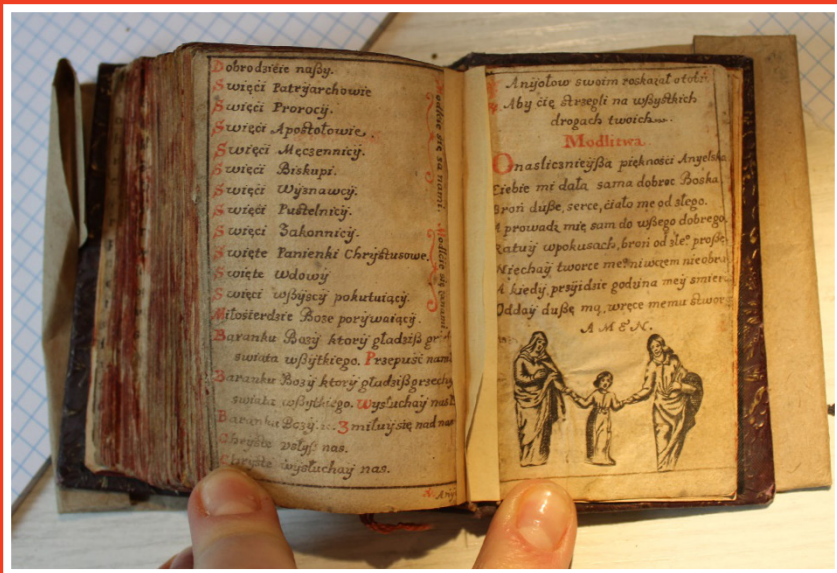 Dobrodzieie naßy.
Święci Patryjarchowie
Święci Prorocij.
Święci Apostołowie.
Święci Męczennicij.
Święci Biskupi.
Święci Wijznawcij.
Święci Pustelnicij.
Święci Zakonnicij.
Święte Panienki Chrijstusowe.
Święte Wdowij
Święci wßijscij pokutuiącij.
Miłosierdzie Boże porijwaiącij.
Baranku Bozij ktorij gładziß
swiata wßijtkiego. Przepuść nam
Baranku Bozij ktorij gładziß grzechij
swiata wßijtkiego. Wysłuchaij nas
Baranku Bozij. Zmiłuij się nad
Chrijste vsłijß nas.
Chrijste wijsłuchaij nas.
Modlcie się za nami. Modlcie się za nami.
Anijołow swoim roskazał o tobi
Aby cię strzegli na wßystkich
drogach twoich.
Modlitwa
O naslicznieijßa piękności Anyelska
Ciebie mi dała sama dobroc Boska
Broń duße, serce, ciało me od złego.
A prowadz mię sam do wßego dobrego
Ratuij w pokusach, broń od złeº proßę
Niechaij tworce meº ni wczem nie obra
A kiedy przijidzie godzina meij smierc
Oddaij dußę mą, wręce memu stworz
AMEN.